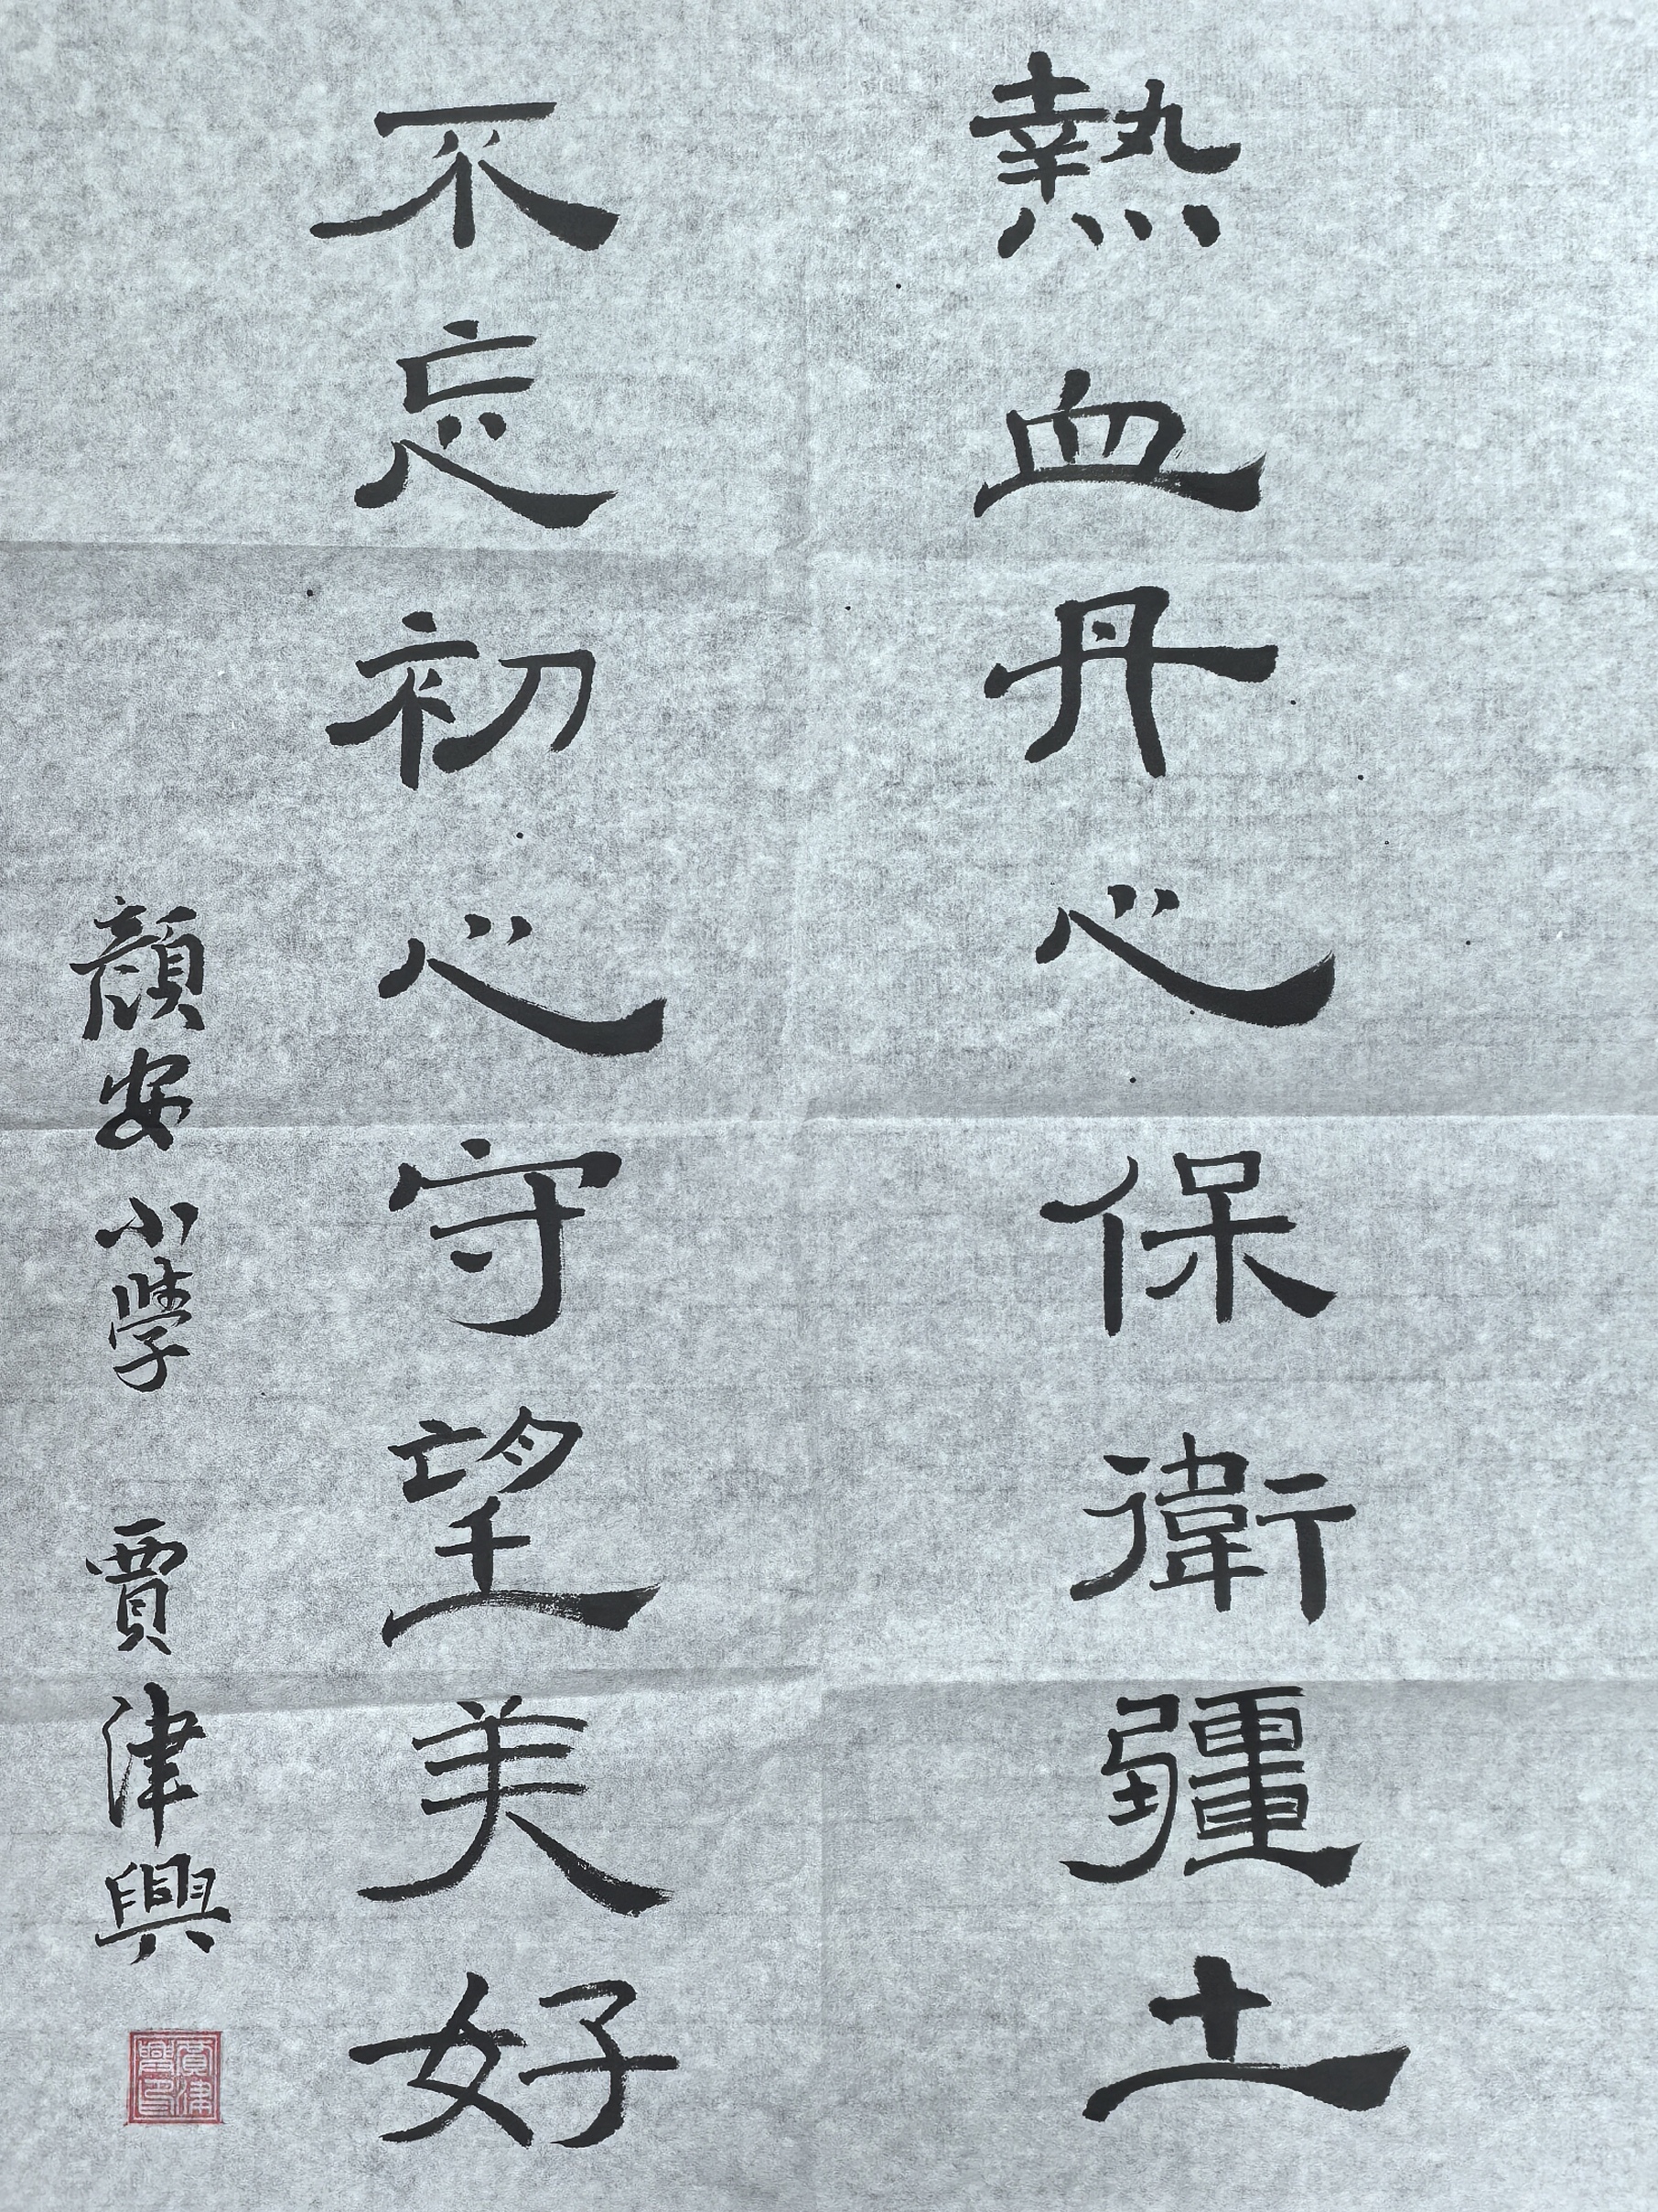 熱血丹心保衛疆土
不忘初心守望美好
顔安小學 賈津興
賈津興印